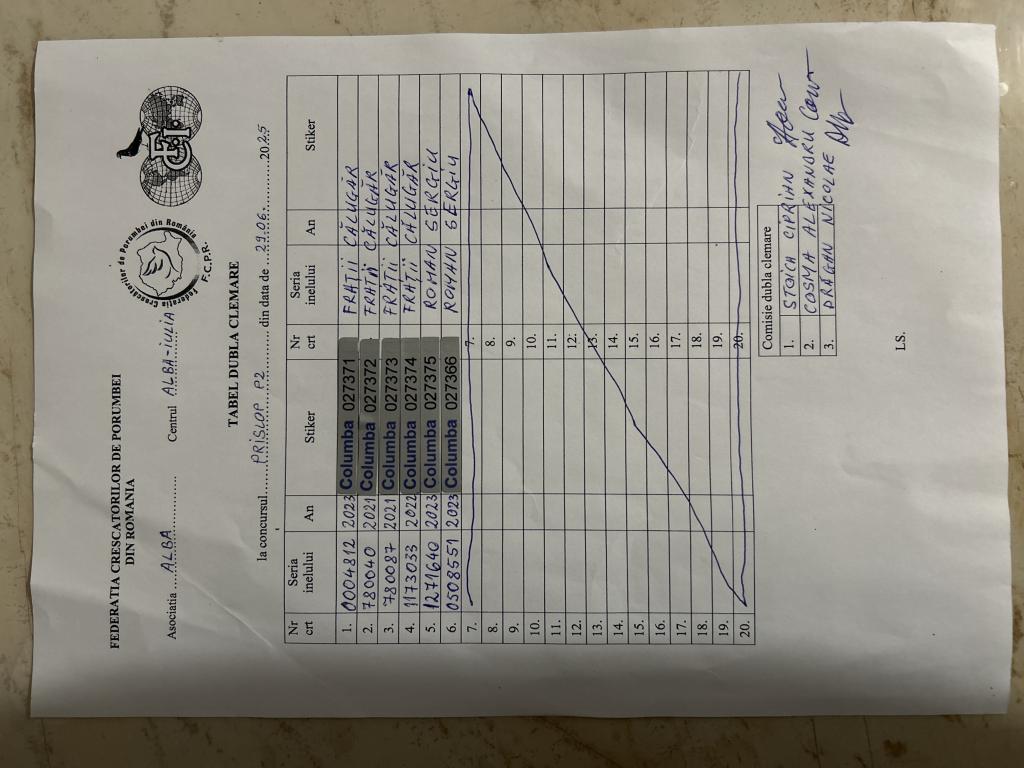 FEDERATIA CRESCATORILOR DE PORUMBEI
DIN ROMANIA
Federatia Crescătorilor de Porumbei din România
F.C.P.R.
FCI
Asociatia .....ALBA..................... Centrul ALBA-IULIA
TABEL DUBLA CLEMARE
la concursul.....PRISLOP P2............ din data de ...29.06.........2025
Nr crt Seria inelului An Stiker Nr crt Seria inelului An Stiker
1. 0004812 2023 Columba 027371 FRAȚII CĂLUGĂR
2. 780040 2021 Columba 027372 FRAȚII CĂLUGĂR
3. 780087 2021 Columba 027373 FRAȚII CĂLUGĂR
4. 1173033 2022 Columba 027374 FRAȚII CĂLUGĂR
5. 1271640 2023 Columba 027375 ROMAN SERGIU
6. 0508551 2023 Columba 027366 ROMAN SERGIU
7. 7.
8. 8.
9. 9.
10. 10.
11. 11.
12. 12.
13. 13.
14. 14.
15. 15.
16. 16.
17. 17.
18. 18.
19. 19.
20. 20.
Comisie dubla clemare
1. STOICA CIPRIAN
2. COSMA ALEXANDRU
3. DRĂGAN NICOLAE
L.S.